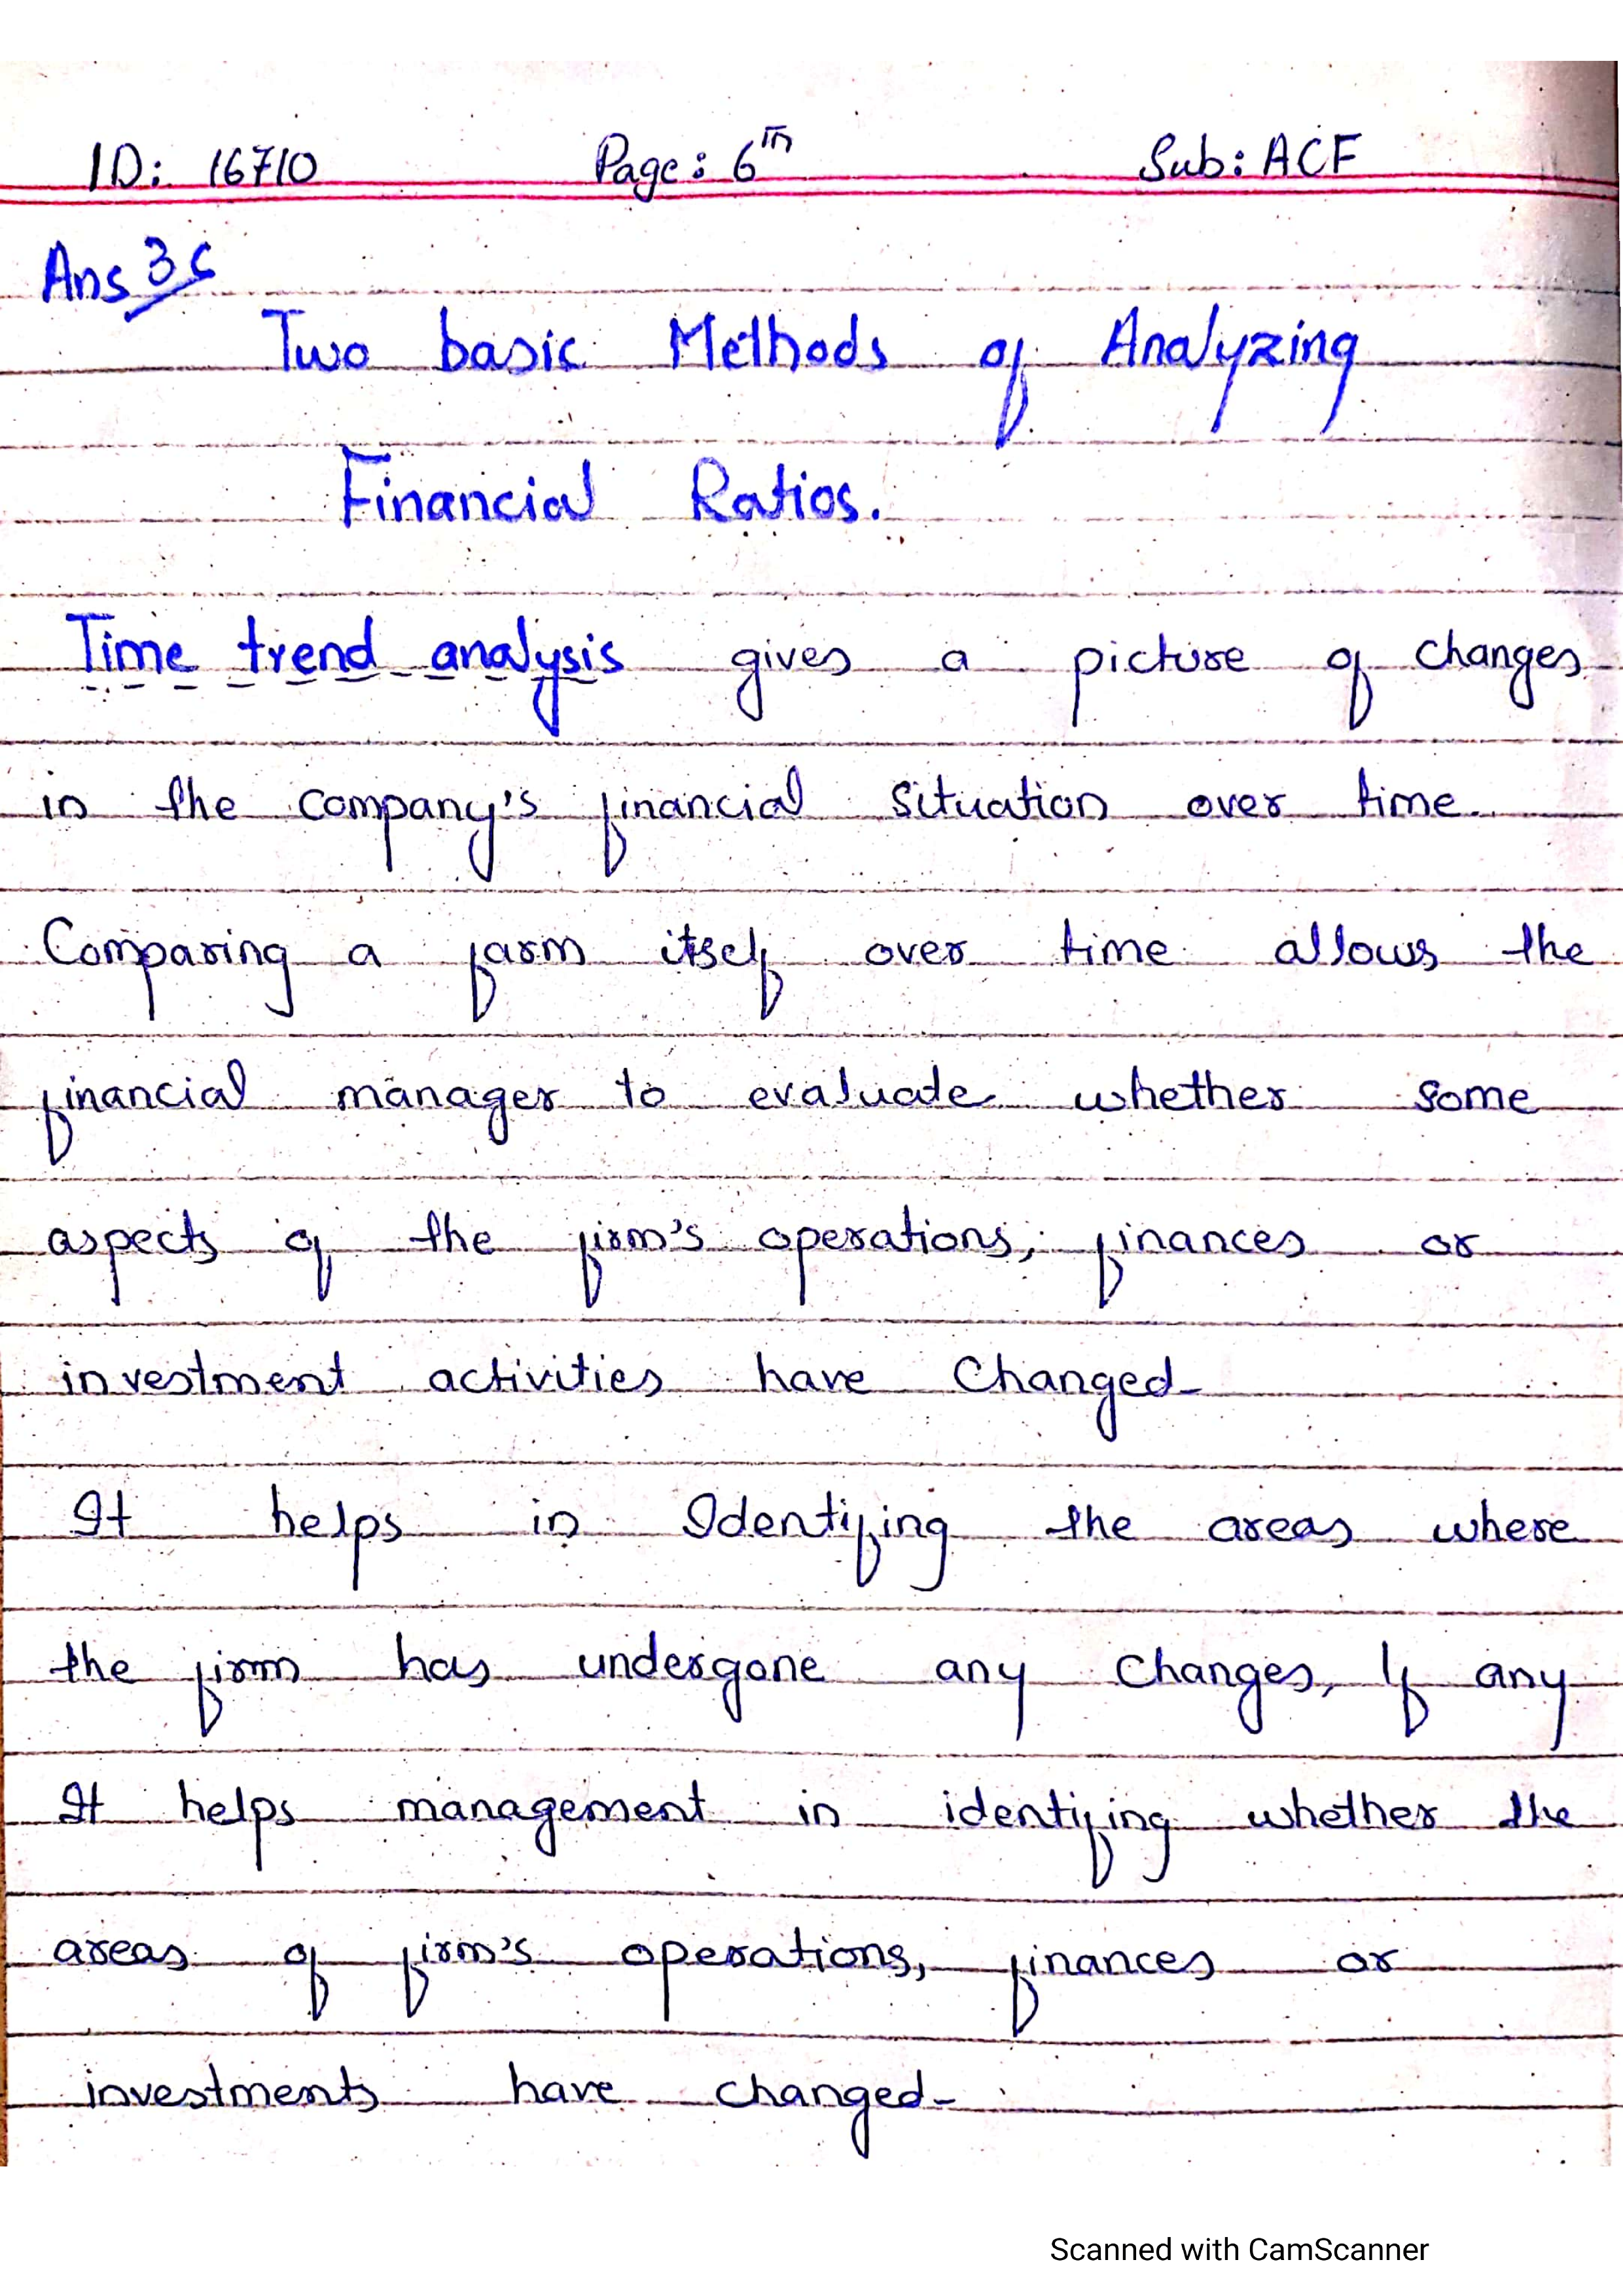 ID: 16710 Page: 6th Sub: ACF
Ans 3c
Two basic Methods of Analyzing
Financial Ratios.
Time trend analysis gives a picture of changes
in the company's financial situation over time.
Comparing a farm itself over time allows the
financial manager to evaluate whether some
aspects of the firm's operations, finances or
investment activities have Changed
It helps in Identifing the areas where
the firm has undergone any Changes, If any
It helps management in identifing whether the
areas of firm's operations, finances or
investments have changed-
Scanned with CamScanner